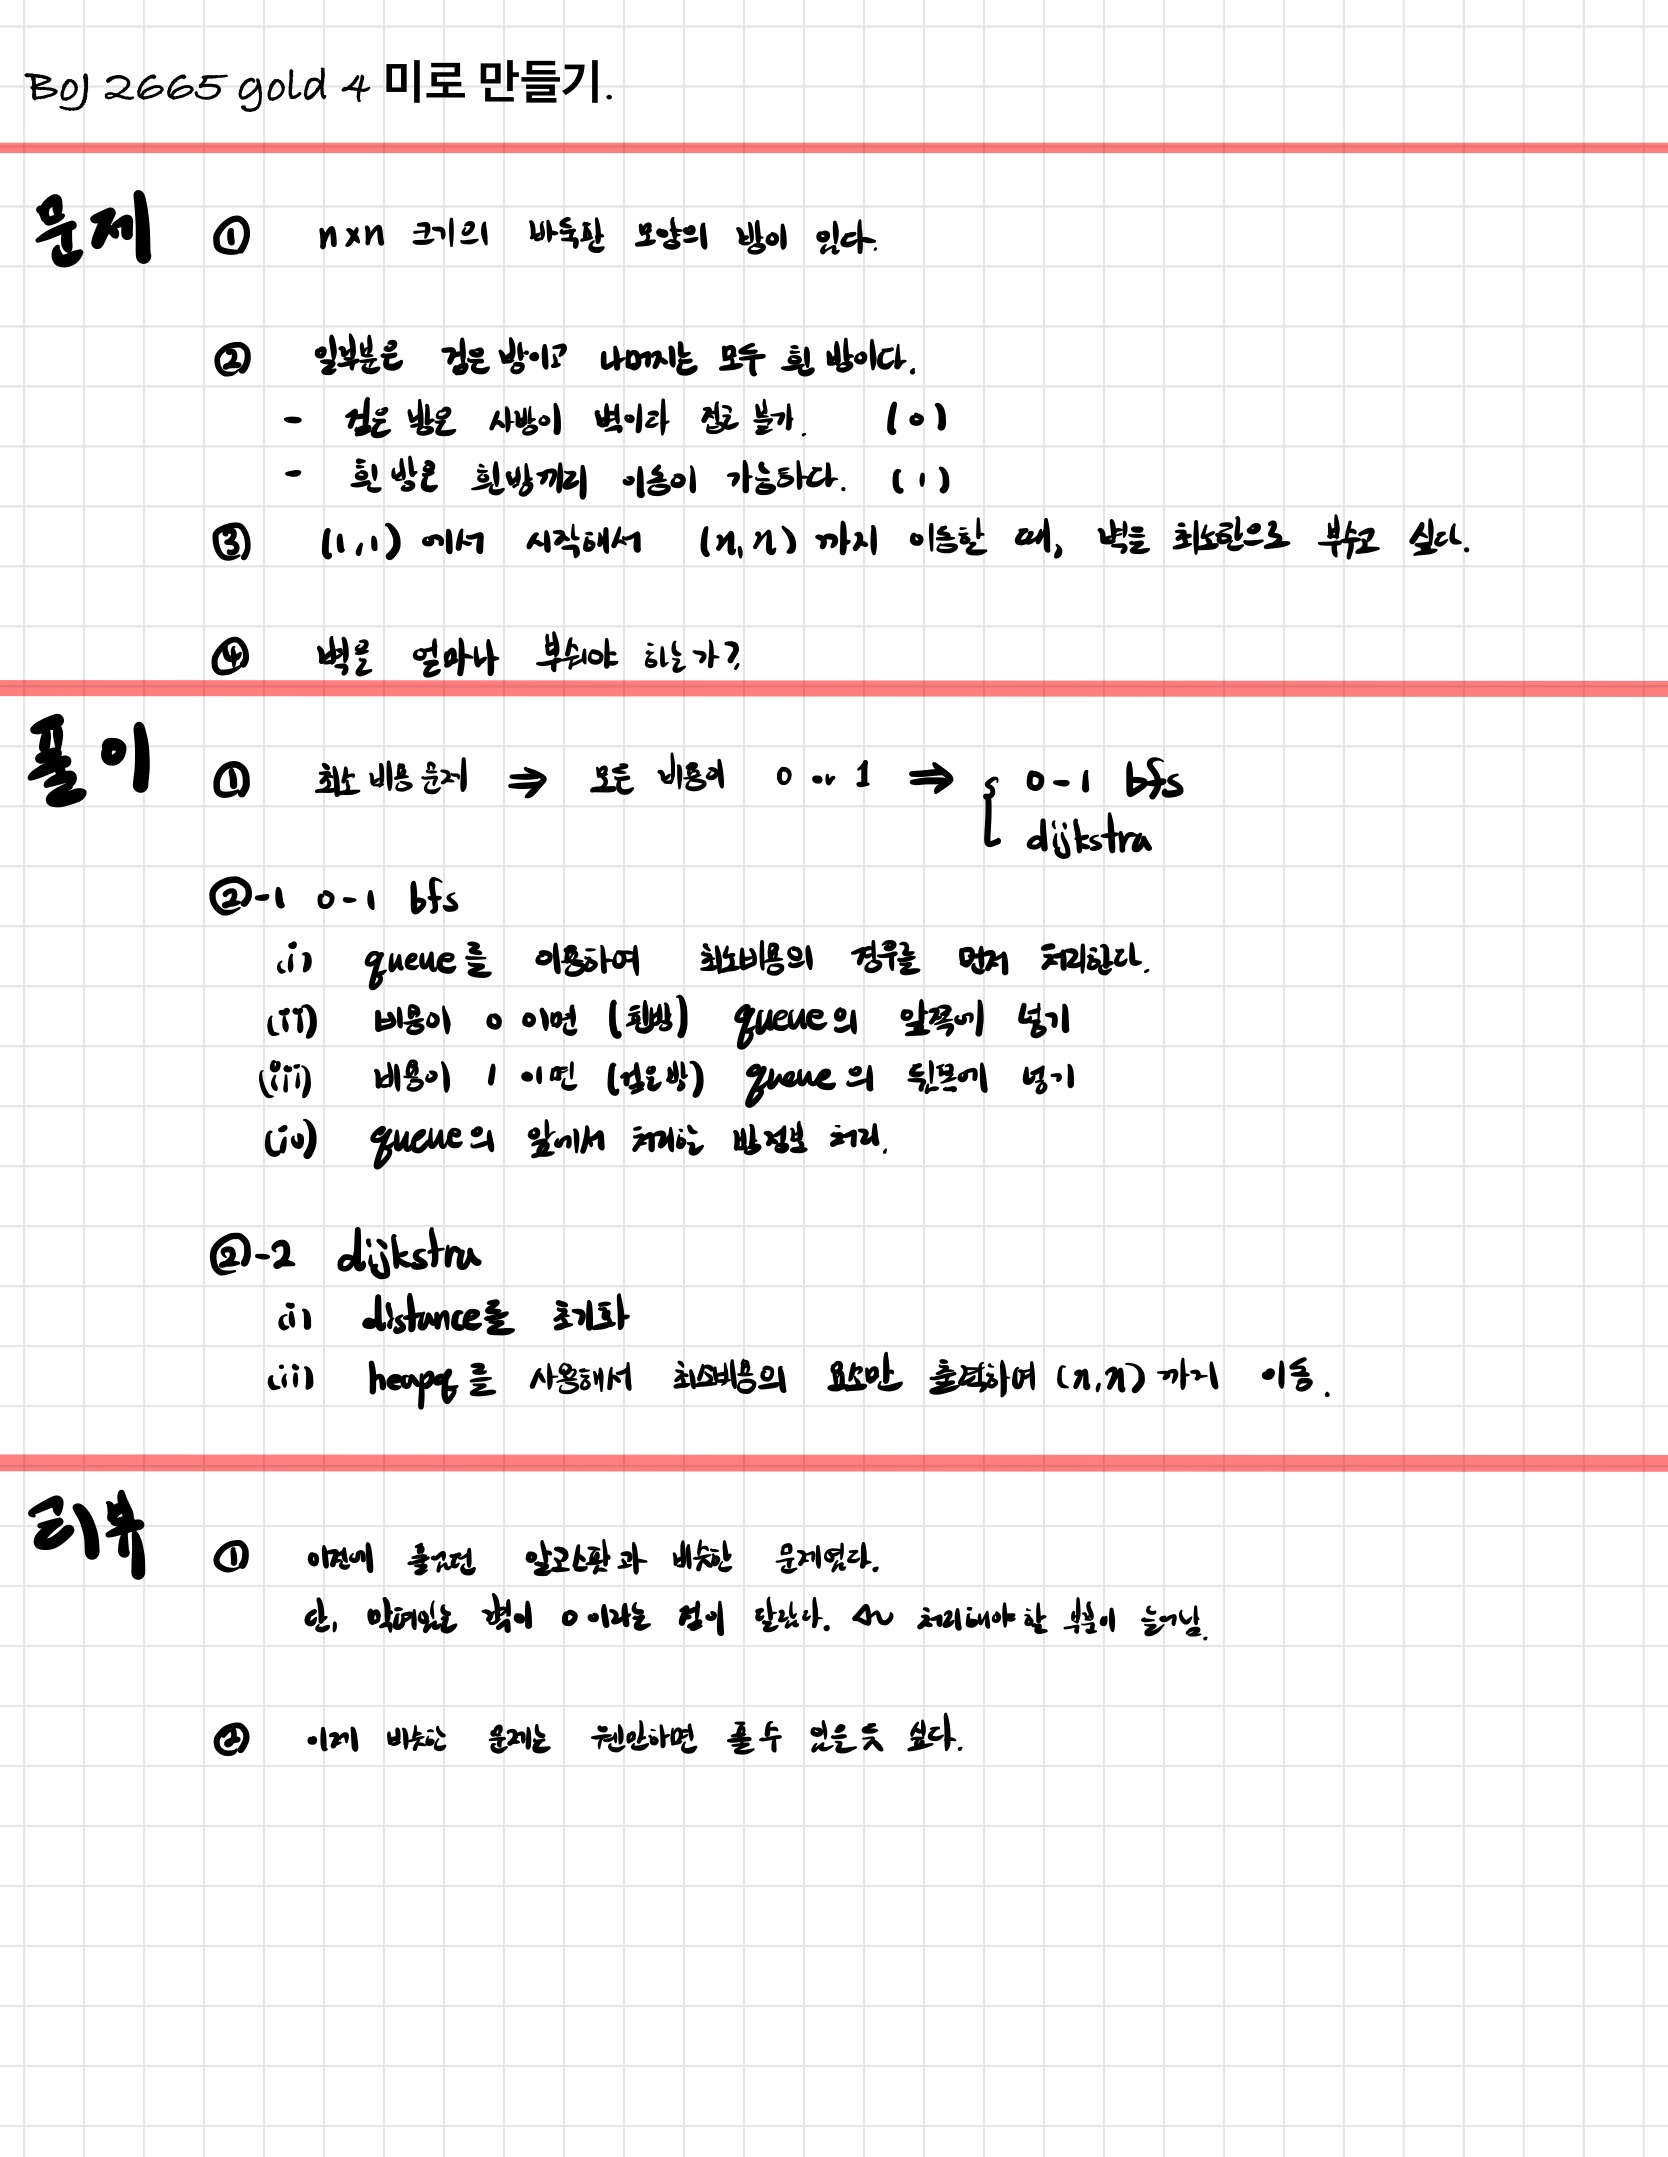 BOJ 2665 gold 4 미로 만들기.
문제 ① n×n 크기의 바둑판 모양의 방이 있다.
② 일부분은 검은 방이고 나머지는 모두 흰 방이다.
- 검은 방은 사방이 벽이라 접근 불가. (0)
- 흰 방은 흰방끼리 이동이 가능하다. (1)
③ (1,1) 에서 시작해서 (n,n) 까지 이동할 때, 벽을 최소한으로 부수고 싶다.
④ 벽을 얼마나 부숴야 하는가?
풀이 ① 최소 비용 문제 ⇒ 모든 비용이 0 or 1 ⇒ { 0-1 bfs
dijkstra
②-1 0-1 bfs
(i) queue를 이용하여 최소비용의 경우를 먼저 처리한다.
(ii) 비용이 0 이면 (흰방) queue의 앞쪽에 넣기
(iii) 비용이 1 이면 (검은방) queue의 뒷쪽에 넣기
(iv) queue의 앞에서 처리할 방정보 처리.
②-2 dijkstra
(i) distance를 초기화
(ii) heapq를 사용해서 최소비용의 요소만 출력하여 (n,n) 까지 이동.
리뷰 ① 이전에 풀었던 알고스팟과 비슷한 문제였다.
단, 막혀있는 벽이 0이라는 점이 달랐다. 처리해야 할 부분이 늘어남.
② 이제 비슷한 문제는 웬만하면 풀 수 있을 듯 싶다.